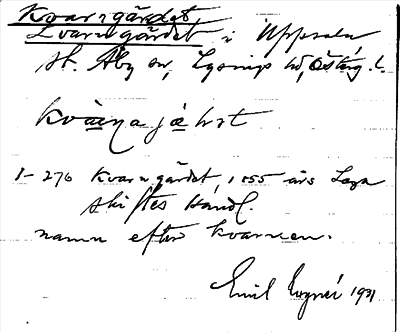 Kvarngärdet
Kvarngärdet i Uppsala
St. Åby sn, Lysings hd, Österg. l.
kvàɳajæ̀ɭət
1-270 Kvarngärdet, 1855 års Laga
skiftes Handl.
namn efter kvarnen.
Emil 1931